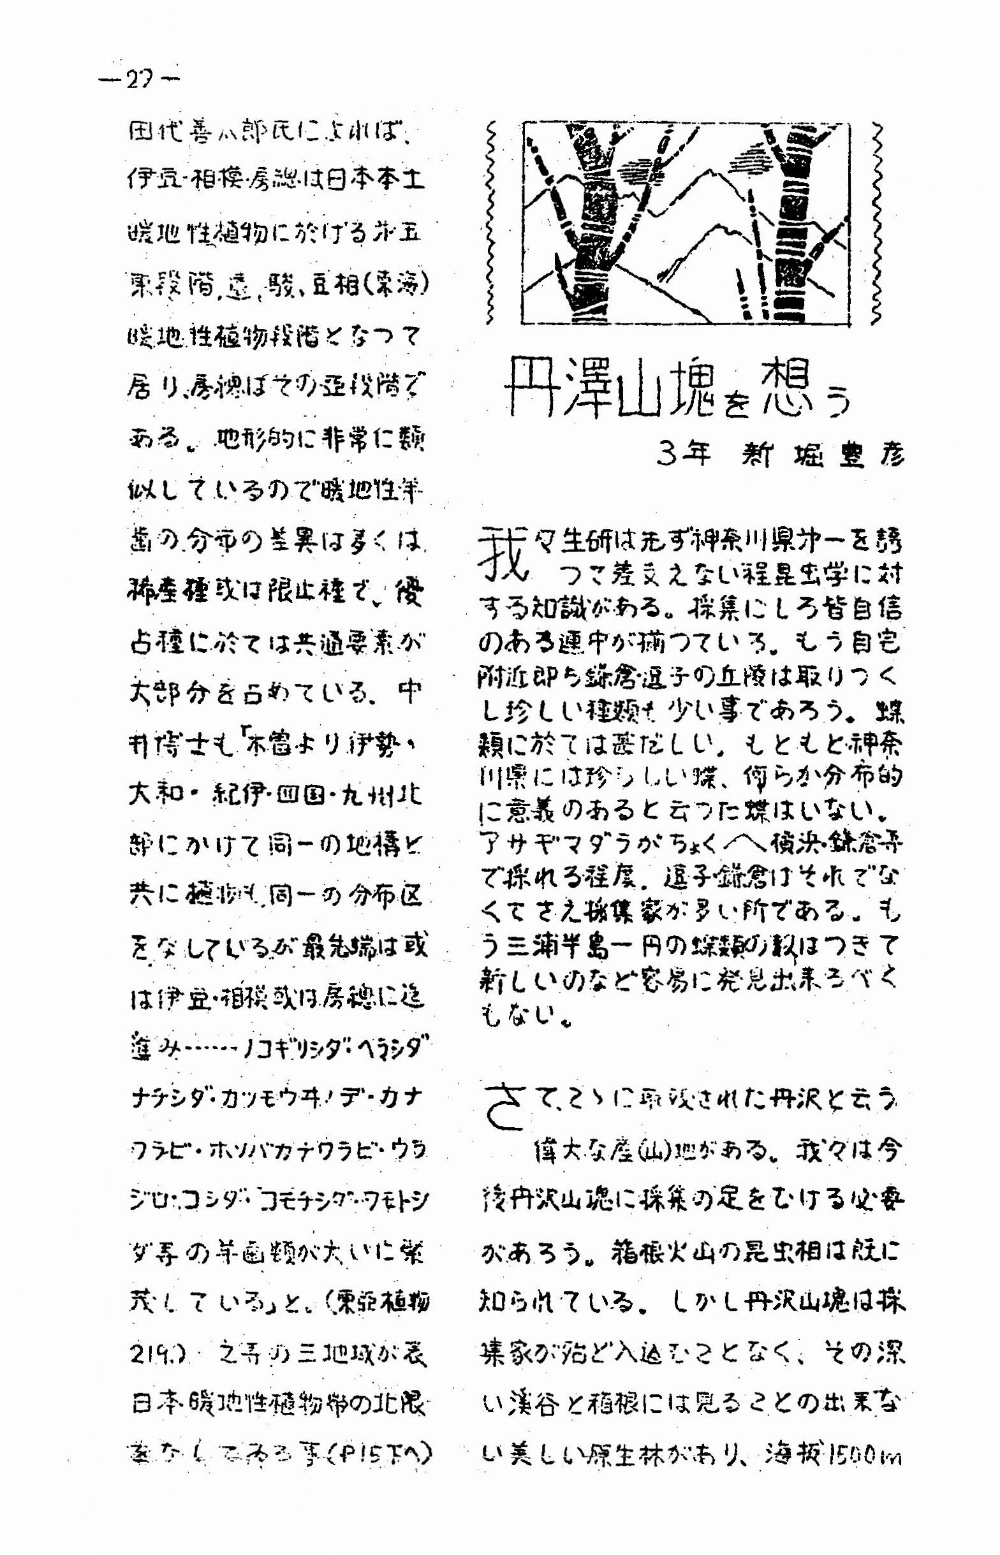 —27—
田代善八郎氏によれば、
伊豆・相模・房総は日本本土
暖地性植物に於ける㐧五
東段階、遠、駿、豆相(東海)
暖地性植物段階となつて
居り、房總はその亜段階で
ある。地形的に非常に類
似しているので暖地性羊
歯の分布の差異は多くは
稀産種或は限止種で、優
占種に於ては共通要素が
大部分を占めている。中
井博士も「木曽より伊勢、
大和・紀伊・四国・九州北
部にかけて同一の地構と
共に植物も同一の分布区
をなしているが最先端は或
は伊豆・相模或は房總に迄
進み……ノコギリシダ・ヘラシダ
ナチシダ・カツモウヰノデ・カナ
ワラビ・ホソバカナワラビ・ウラ
ジロ・コシダ・コモチシダ・ワモトシ
ダ等の羊歯類が大いに繁
茂している」と。(東亜植物
219.) 之等の三地域が表
日本暖地性植物帯の北限
をなしてゐる事(P15下へ)
丹澤山塊を想う
3年 新堀豊彦
我々生研は先ず神奈川県㐧一を誇
つて差支えない程昆虫学に対
する知識がある。採集にしろ皆自信
のある連中が揃つている。もう自宅
附近即ち鎌倉・逗子の丘陵は取りつく
し珍しい種類も少い事であろう。蝶
類に於ては甚だしい。もともと神奈
川県には珍らしい蝶、何らか分布的
に意義のあると云つた蝶はいない。
アサギマダラがちょくへ横浜・鎌倉等
で採れる程度。逗子・鎌倉はそれでな
くてさえ採集家が多い所である。も
う三浦半島一円の蝶類の数はつきて
新しいのなど容易に発見出来るべく
もない。
さて、こゝに取残された丹沢と云う
偉大な産(山)地がある。我々は今
後丹沢山塊に採集の足をむける必要
があろう。箱根火山の昆虫相は既に
知られている。しかし丹沢山塊は採
集家が殆ど入込むことなく、その深
い渓谷と箱根には見ることの出来な
い美しい原生林があり、海抜1500m